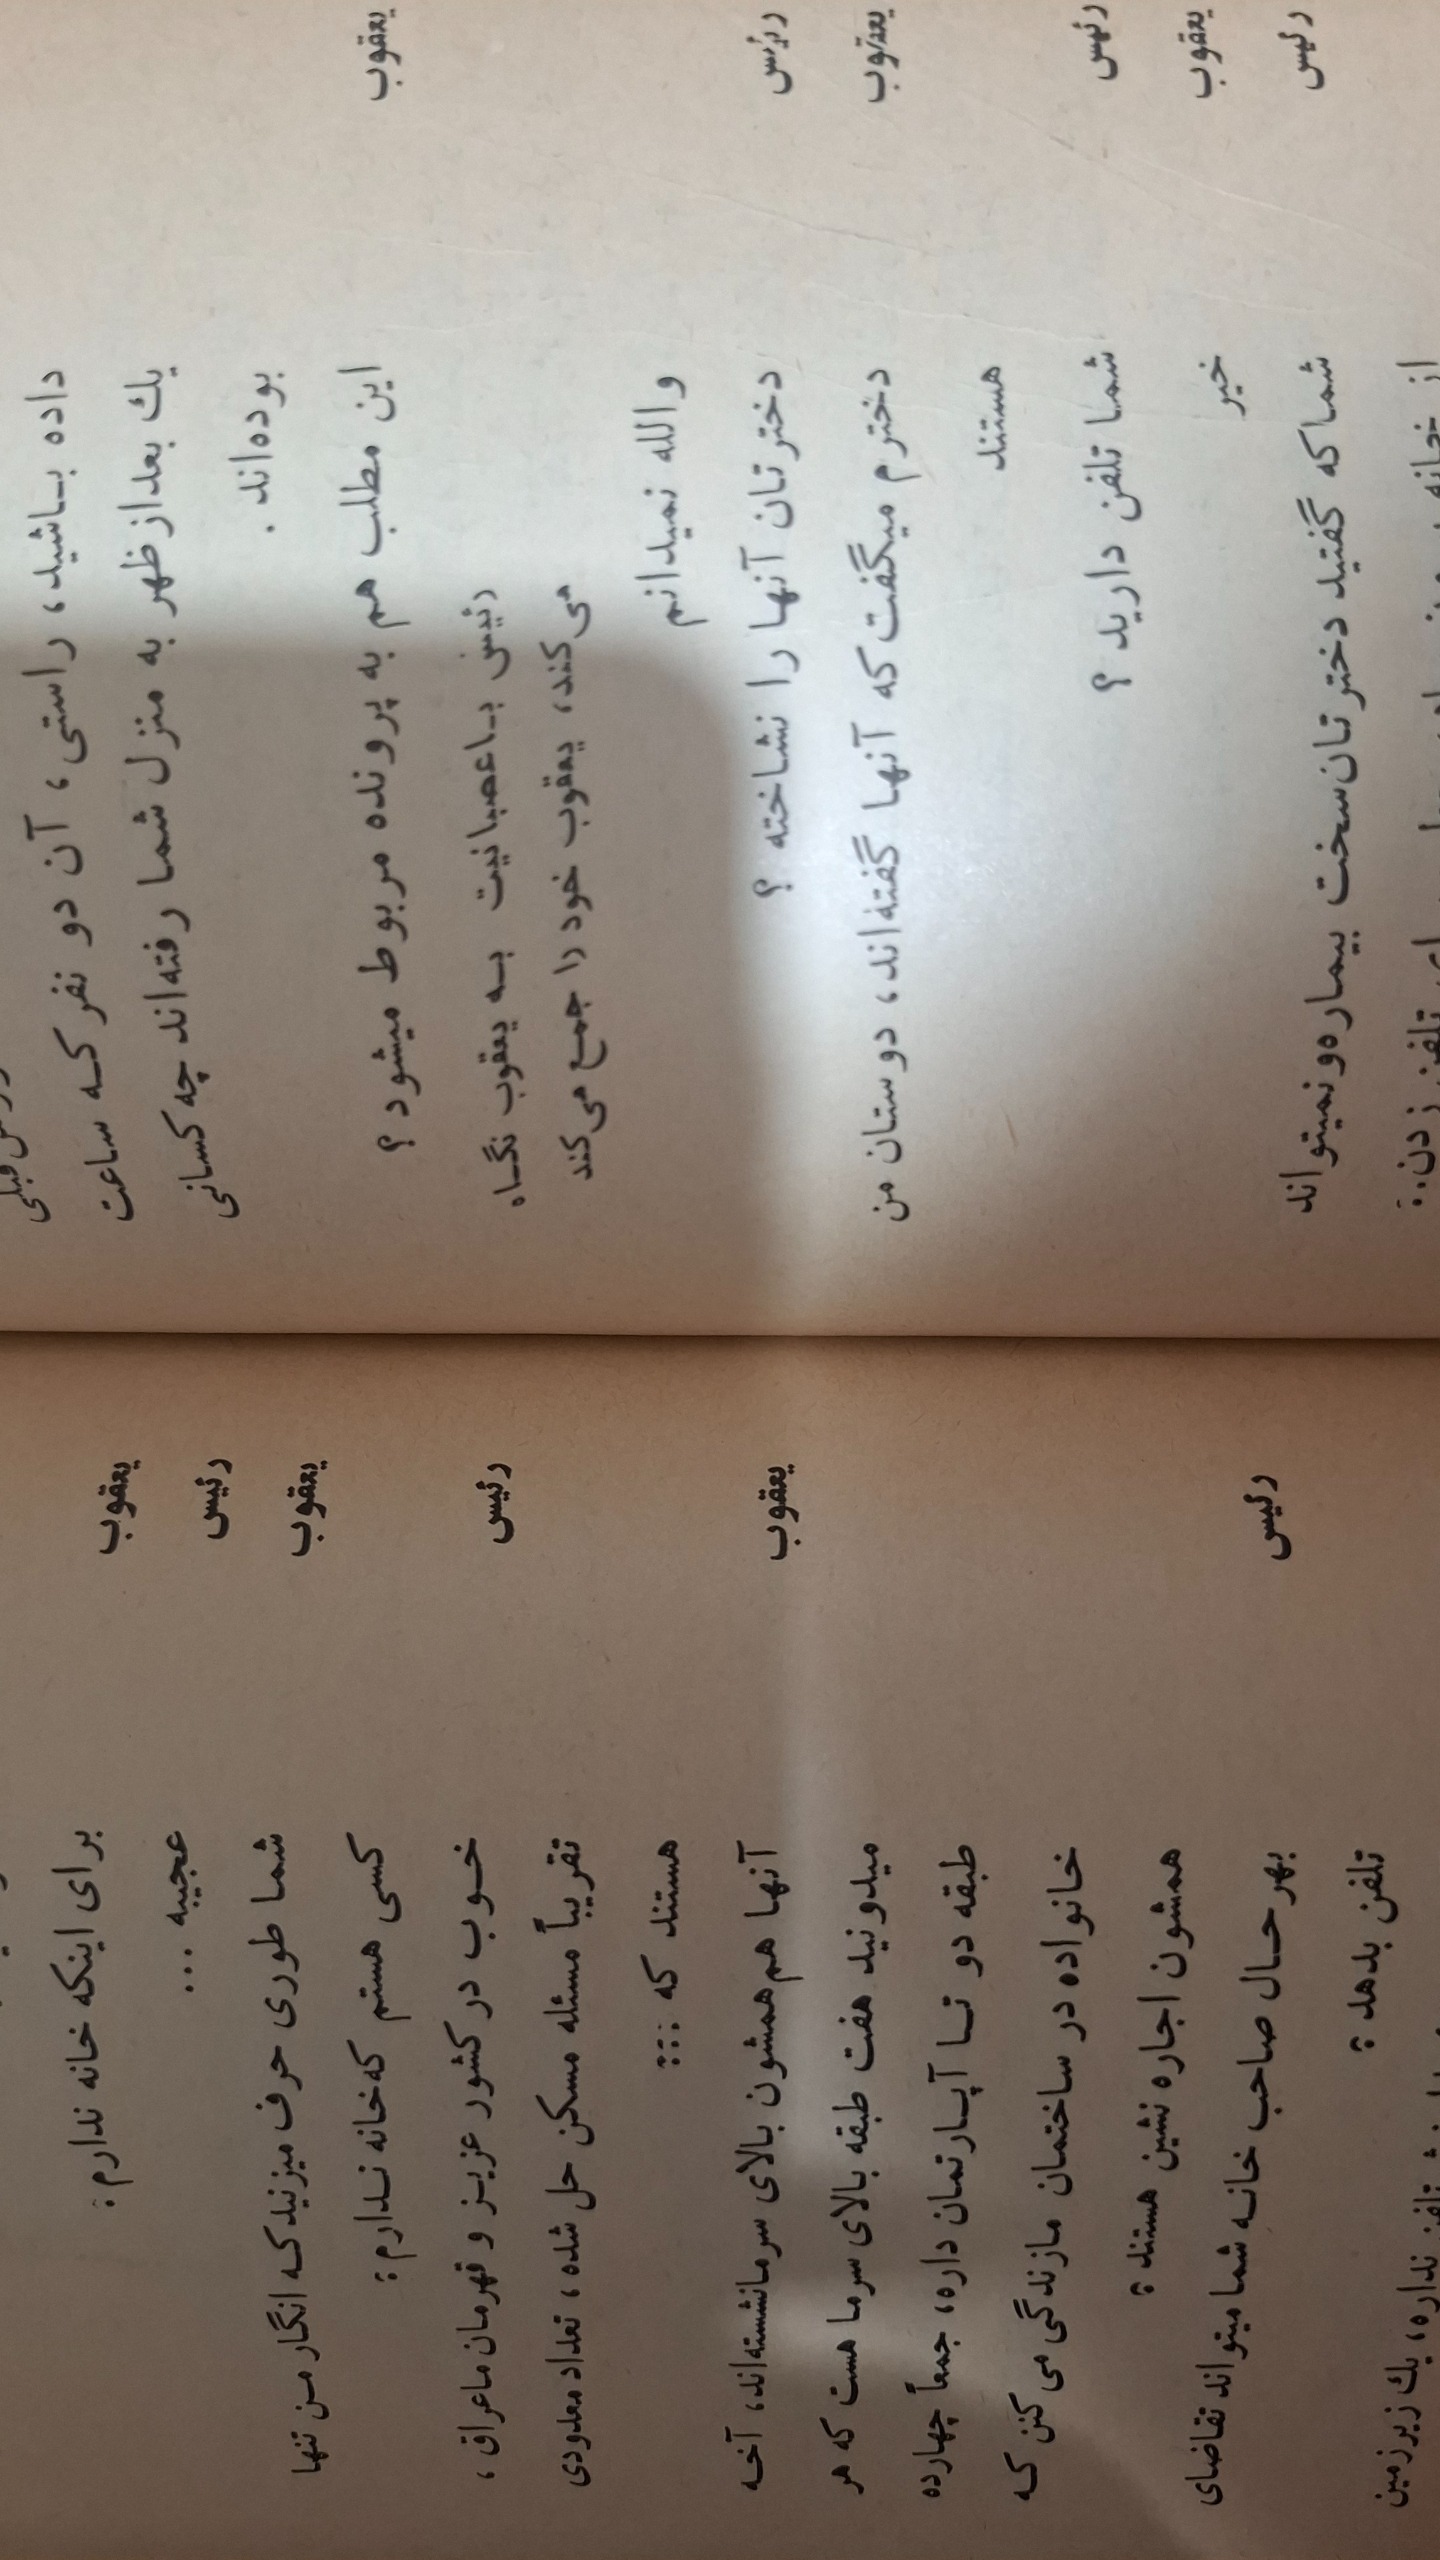 قبلی
داده باشید، راستی، آن دو نفر که ساعت
یك بعدازظهر به منزل شما رفته‌اند چه کسانی
بوده‌اند.
یعقوب این مطلب هم به پرونده مربوط میشود؟
رئیس باعصبانیت به یعقوب نگاه
می‌کند، یعقوب خود را جمع می‌کند
والله نمیدانم
رئیس دخترتان آنها را نشاخته ؟
یعقوب دخترم میگفت که آنها گفته‌اند، دوستان من
هستند
رئیس شما تلفن دارید ؟
یعقوب خیر
رئیس شما که گفتید دخترتان سخت بیماره و نمیتواند
از خانه تلفن زدن..
یعقوب برای اینکه خانه ندارم؛
رئیس عجیبه ...
یعقوب شما طوری حرف میزنید که انگار من تنها
کسی هستم که خانه ندارم؛
رئیس خوب در کشور عزیز و قهرمان ما عراق،
تقریباً مسئله مسکن حل شده، تعداد معدودی
هستند که ...
یعقوب آنها هم همشون بالای سر مانشسته‌اند، آخه
میدونید هفت طبقه بالای سر ما هست که هر
طبقه دو تا آپارتمان داره، جمعاً چهارده
خانواده در ساختمان ما زندگی می کنن که
همشون اجاره نشین هستند؛
رئیس بهر حال صاحب خانه شما میتواند تقاضای
تلفن بدهد؛
تلفن نداره، یك زیرزمین